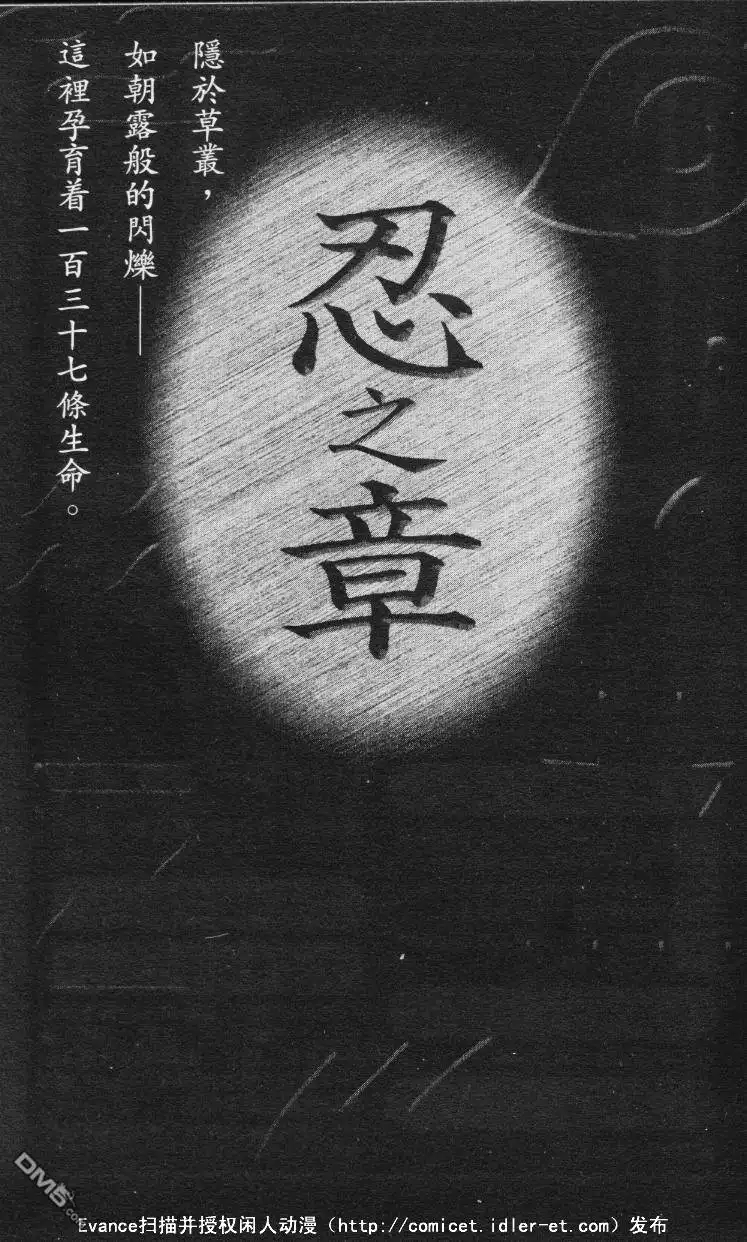 隱於草叢，
如朝露般的閃爍——
這裡孕育着一百三十七條生命。
忍之章
DM5.com
Evance扫描并授权闲人动漫（http://comicet.idler-et.com）发布